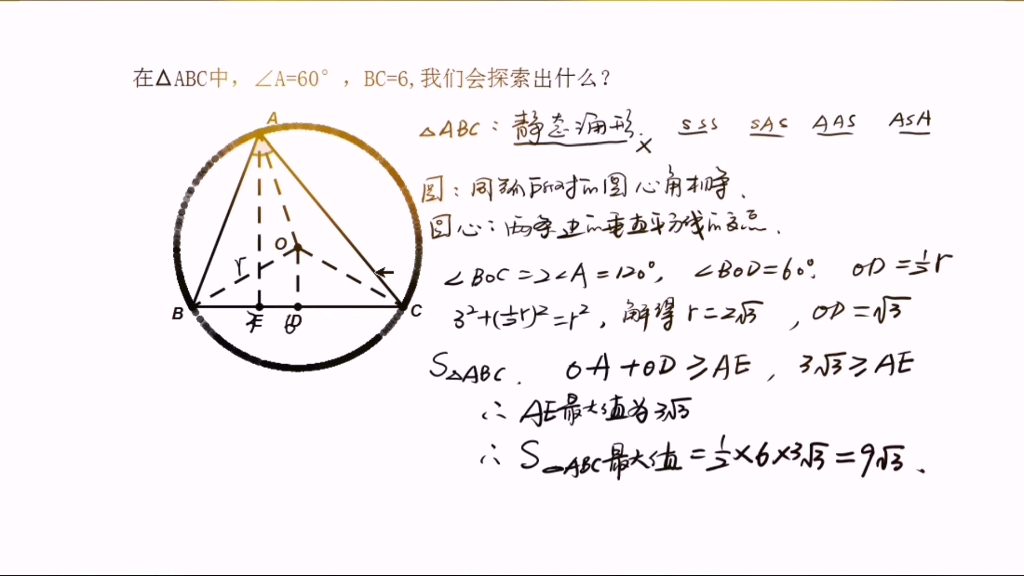 在△ABC中，∠A=60°，BC=6,我们会探索出什么？
A
△ABC：静态三角形. × SSS SAS AAS ASA
圆：同弧所对的圆心角相等.
圆心：两条边的垂直平分线的交点.
O
r
∠BOC=2∠A=120°, ∠BOD=60°. OD=½r
B
C
E
D
3²+(½r)²=r², 解得r=2√3, OD=√3
S△ABC. OA+OD≥AE, 3√3≥AE
∴ AE最大值为3√3
∴ S△ABC最大值=½×6×3√3=9√3.